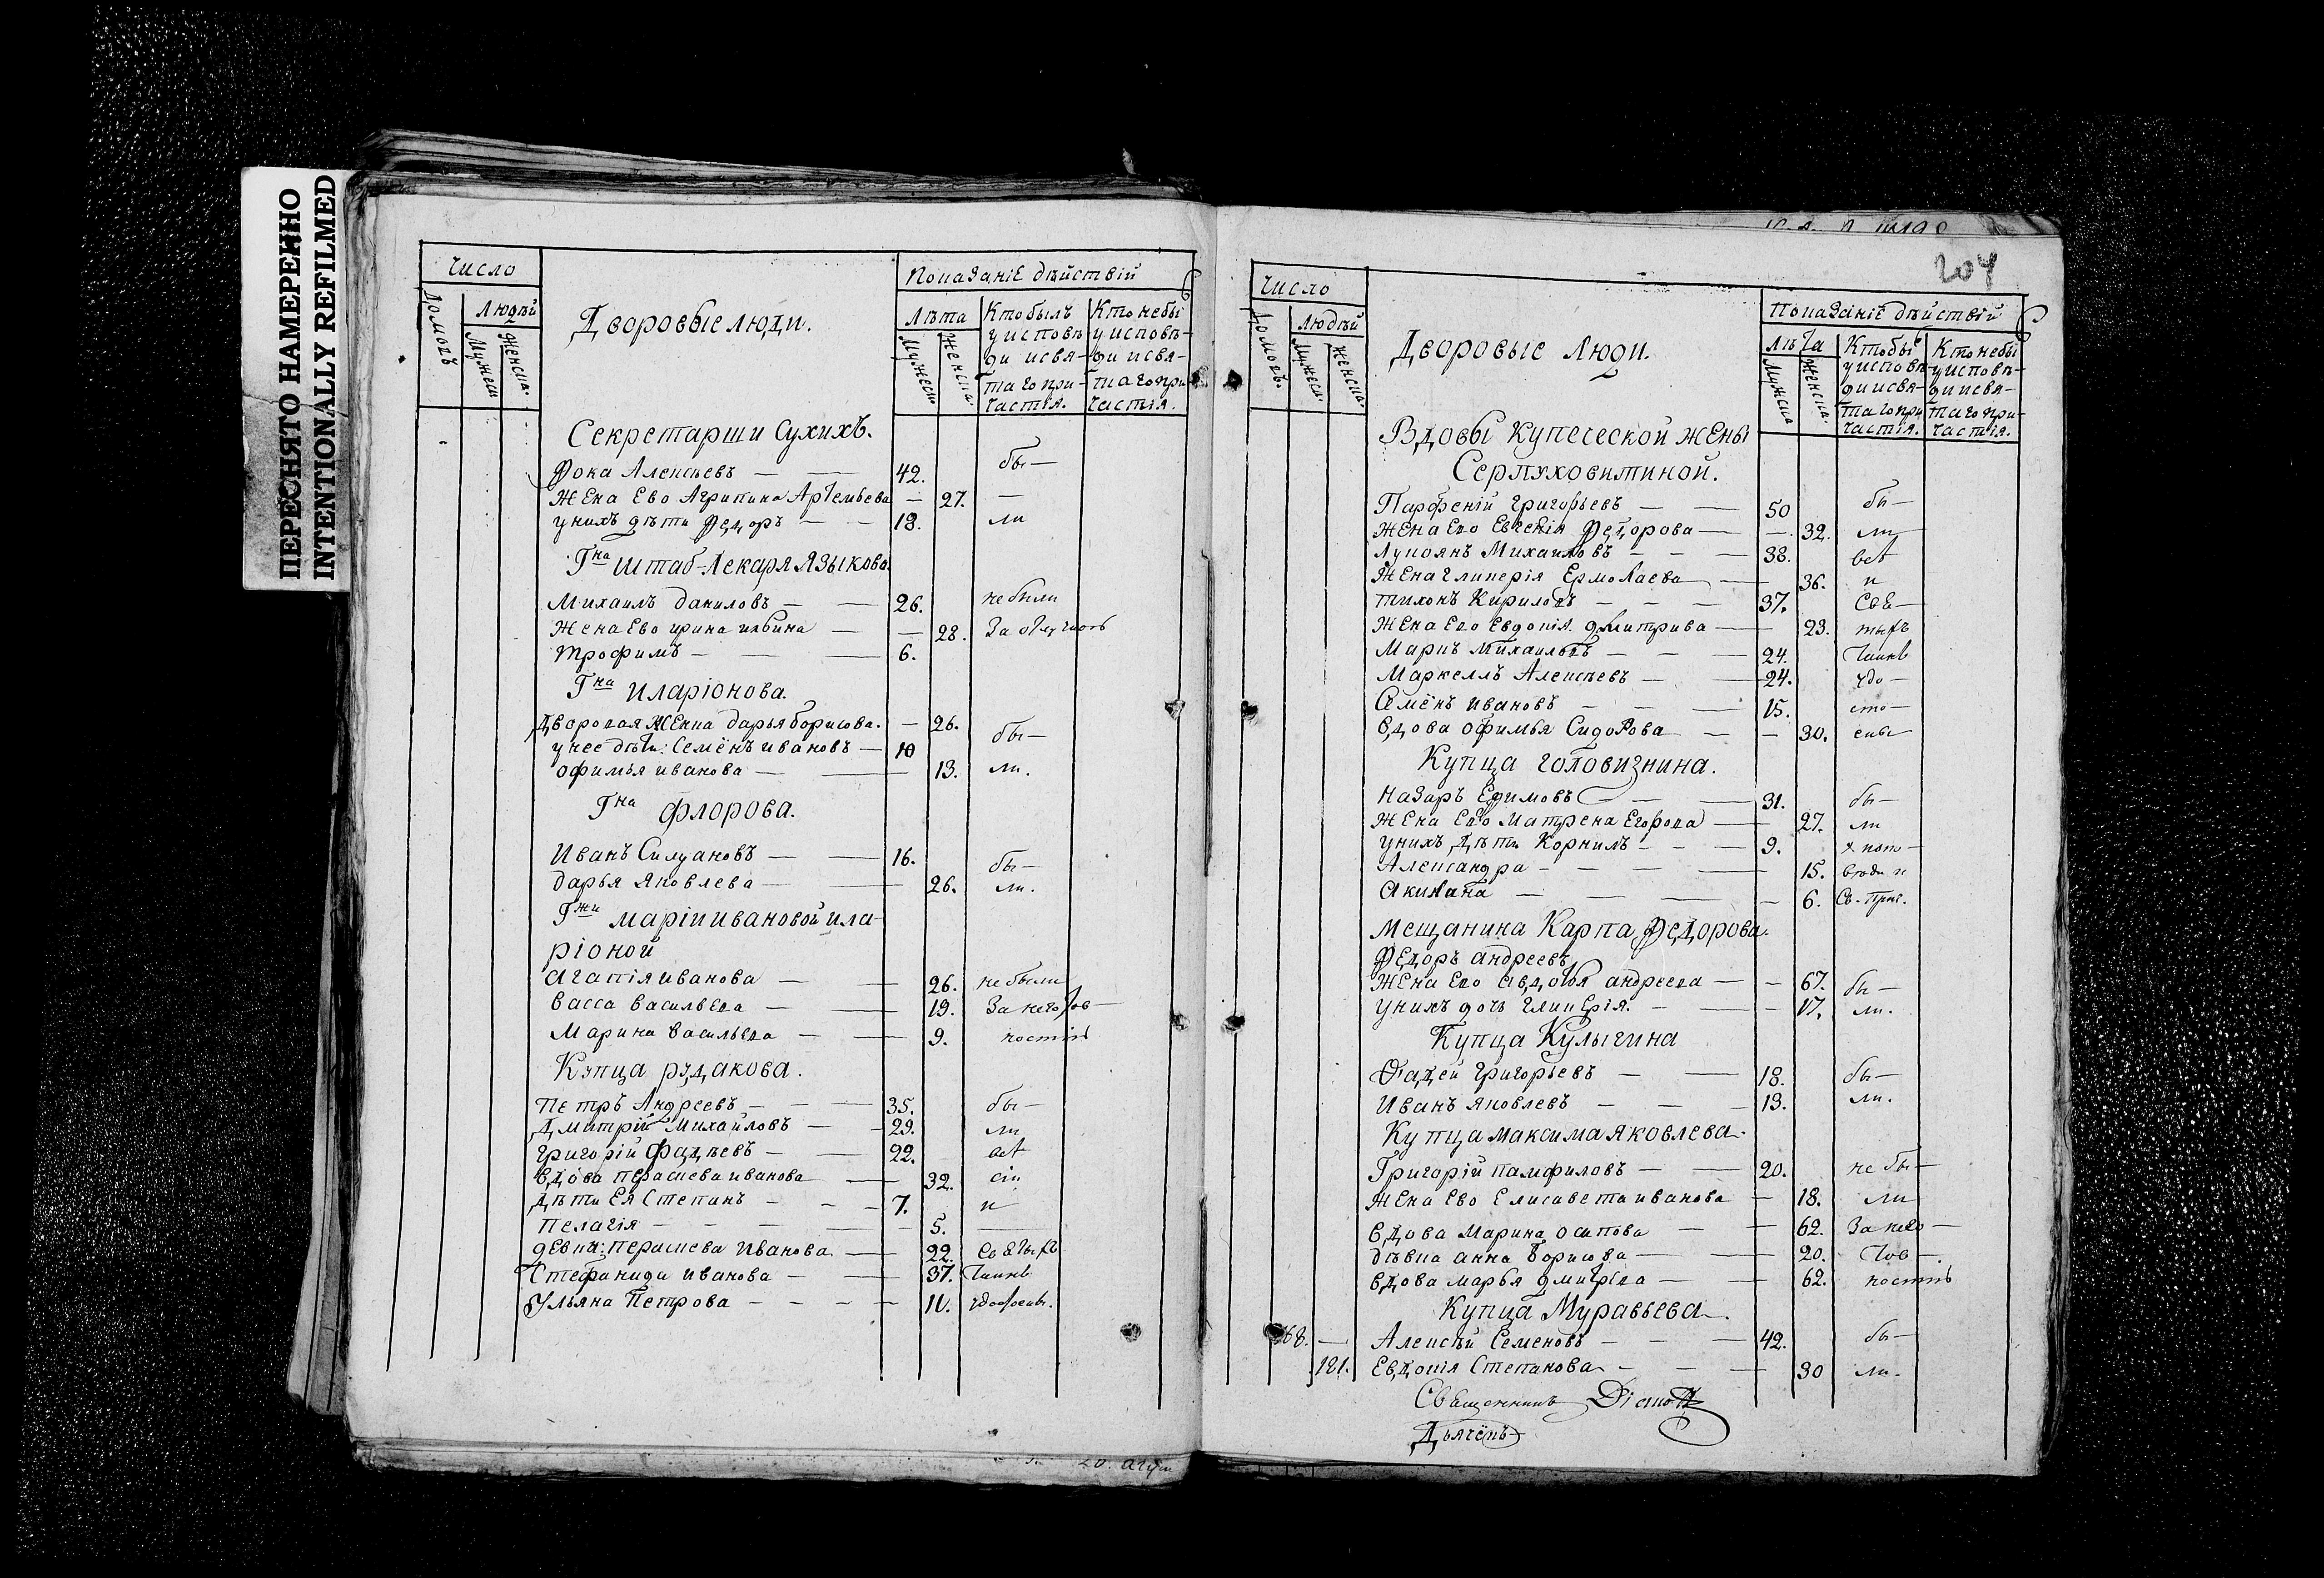 ПЕРЕСНЯТО НАМЕРЕННО
INTENTIONALLY REFILMED
Число
Домовъ
Людѣй
Мужеск
Женска.
Дворовые люди.
Показаніе дѣйствій
Лѣта
Мужеск
Женска.
Кто былъ у исповѣди и святаго причастія.
Кто небы у исповѣди и святаго причастія.
Секретарши Сухихъ.
Фока Алексѣевъ — — 42. бы—
Жена Ево Агрипина Артемьева — 27. —
унихъ дѣти Федоръ — — 18. ли
Гна Штаб-Лекаря Языкова
Михаилъ даниловъ — — 26. не были
Жена Ево ирина ильина — — 28. За отлучкою
Трофимъ — — — 6.
Гна иларіонова.
Дворовая Женка дарья борисова. — 26.
унее дѣти: Семёнъ ивановъ — 10 бы—
офимья иванова — — 13. ли.
Гна флорова.
Иванъ Силуановъ — — 16. бы—
дарья Яковлева — — 26. ли.
Гжи маріи ивановой ила-
ріоной
агапія иванова — — 26. не были
васса васильева — — 19. За него тов—
Марина васильева — — 9. ностію
Купца рудакова.
Петръ Андреевъ — — — 35. бы—
Дмитрій Михайловъ — — 29. ли
григорій Фадѣевъ — — 22.
вдова пераскева иванова — 32.
Дѣти Ея Степанъ — — — 7. и
пелагія — — — — 5. —
девка: пераскева Иванова — 22.
Стефанида иванова — — 37. Таинъ
Ульяна Петрова — — — — 11.
204
Число
Домовъ.
Людѣй
Мужеск.
Женска.
Дворовые Люди.
Показаніе дѣйствій
Лѣта
Мужска
Женска.
Кто бы у исповѣди и святаго причастія.
Кто небы у исповѣди и святаго причастія.
Вдовы купеческой жены
Серпуховитиной.
Парфеній григорьевъ — — 50 бы—
Жена Ево Евгенія Федорова — — 32. ли—
Лукоянъ Михаиловъ — — — 38. всѣ
Жена гликерія Ермолаева — — 36. и
тихонъ Кириловъ — — — 37. Свя—
Жена Ево Евдокія дмитрива — — 23. тыхъ
Маркъ Михаиловъ — — — 24. Таинъ
Маркеллъ Алексѣевъ — — 24. удо—
Семёнъ ивановъ — — — 15. сто—
вдова офимья Сидорова — — 30.
Купца головизнина.
назаръ Ефимовъ — — 31. бы—
Жена Ево Матрена Егорова — — 27. ли
унихъ Дѣти Корнилъ — — — 9.
Александра — — — — — 15.
Акилина — — — — 6. Св. Прич.
мещанина Карпа Федорова.
Федоръ андреевъ
Жена Ево авдотья андреева — — 67. бы—
унихъ дочь гликерія. — — — 17. ли.
Купца Кулыгина
Фадей григорьевъ — — 18. бы—
Иванъ яковлевъ — — — 13. ли.
Купца максима яковлева.
Григорій памфиловъ — — 20. не бы—
Жена Ево Елисавета иванова — 18. ли
вдова Марина осипова — — 62. За него—
дѣвка анна борисова — — 20. Тов—
вдова марья дмитріева — — 62. ностію
Купца Муравьева.
168. — Алексѣй Семеновъ — — — 42. бы—
181. Евдокія Степанова — — — 30 ли.
Священникъ
Дьячёкъ